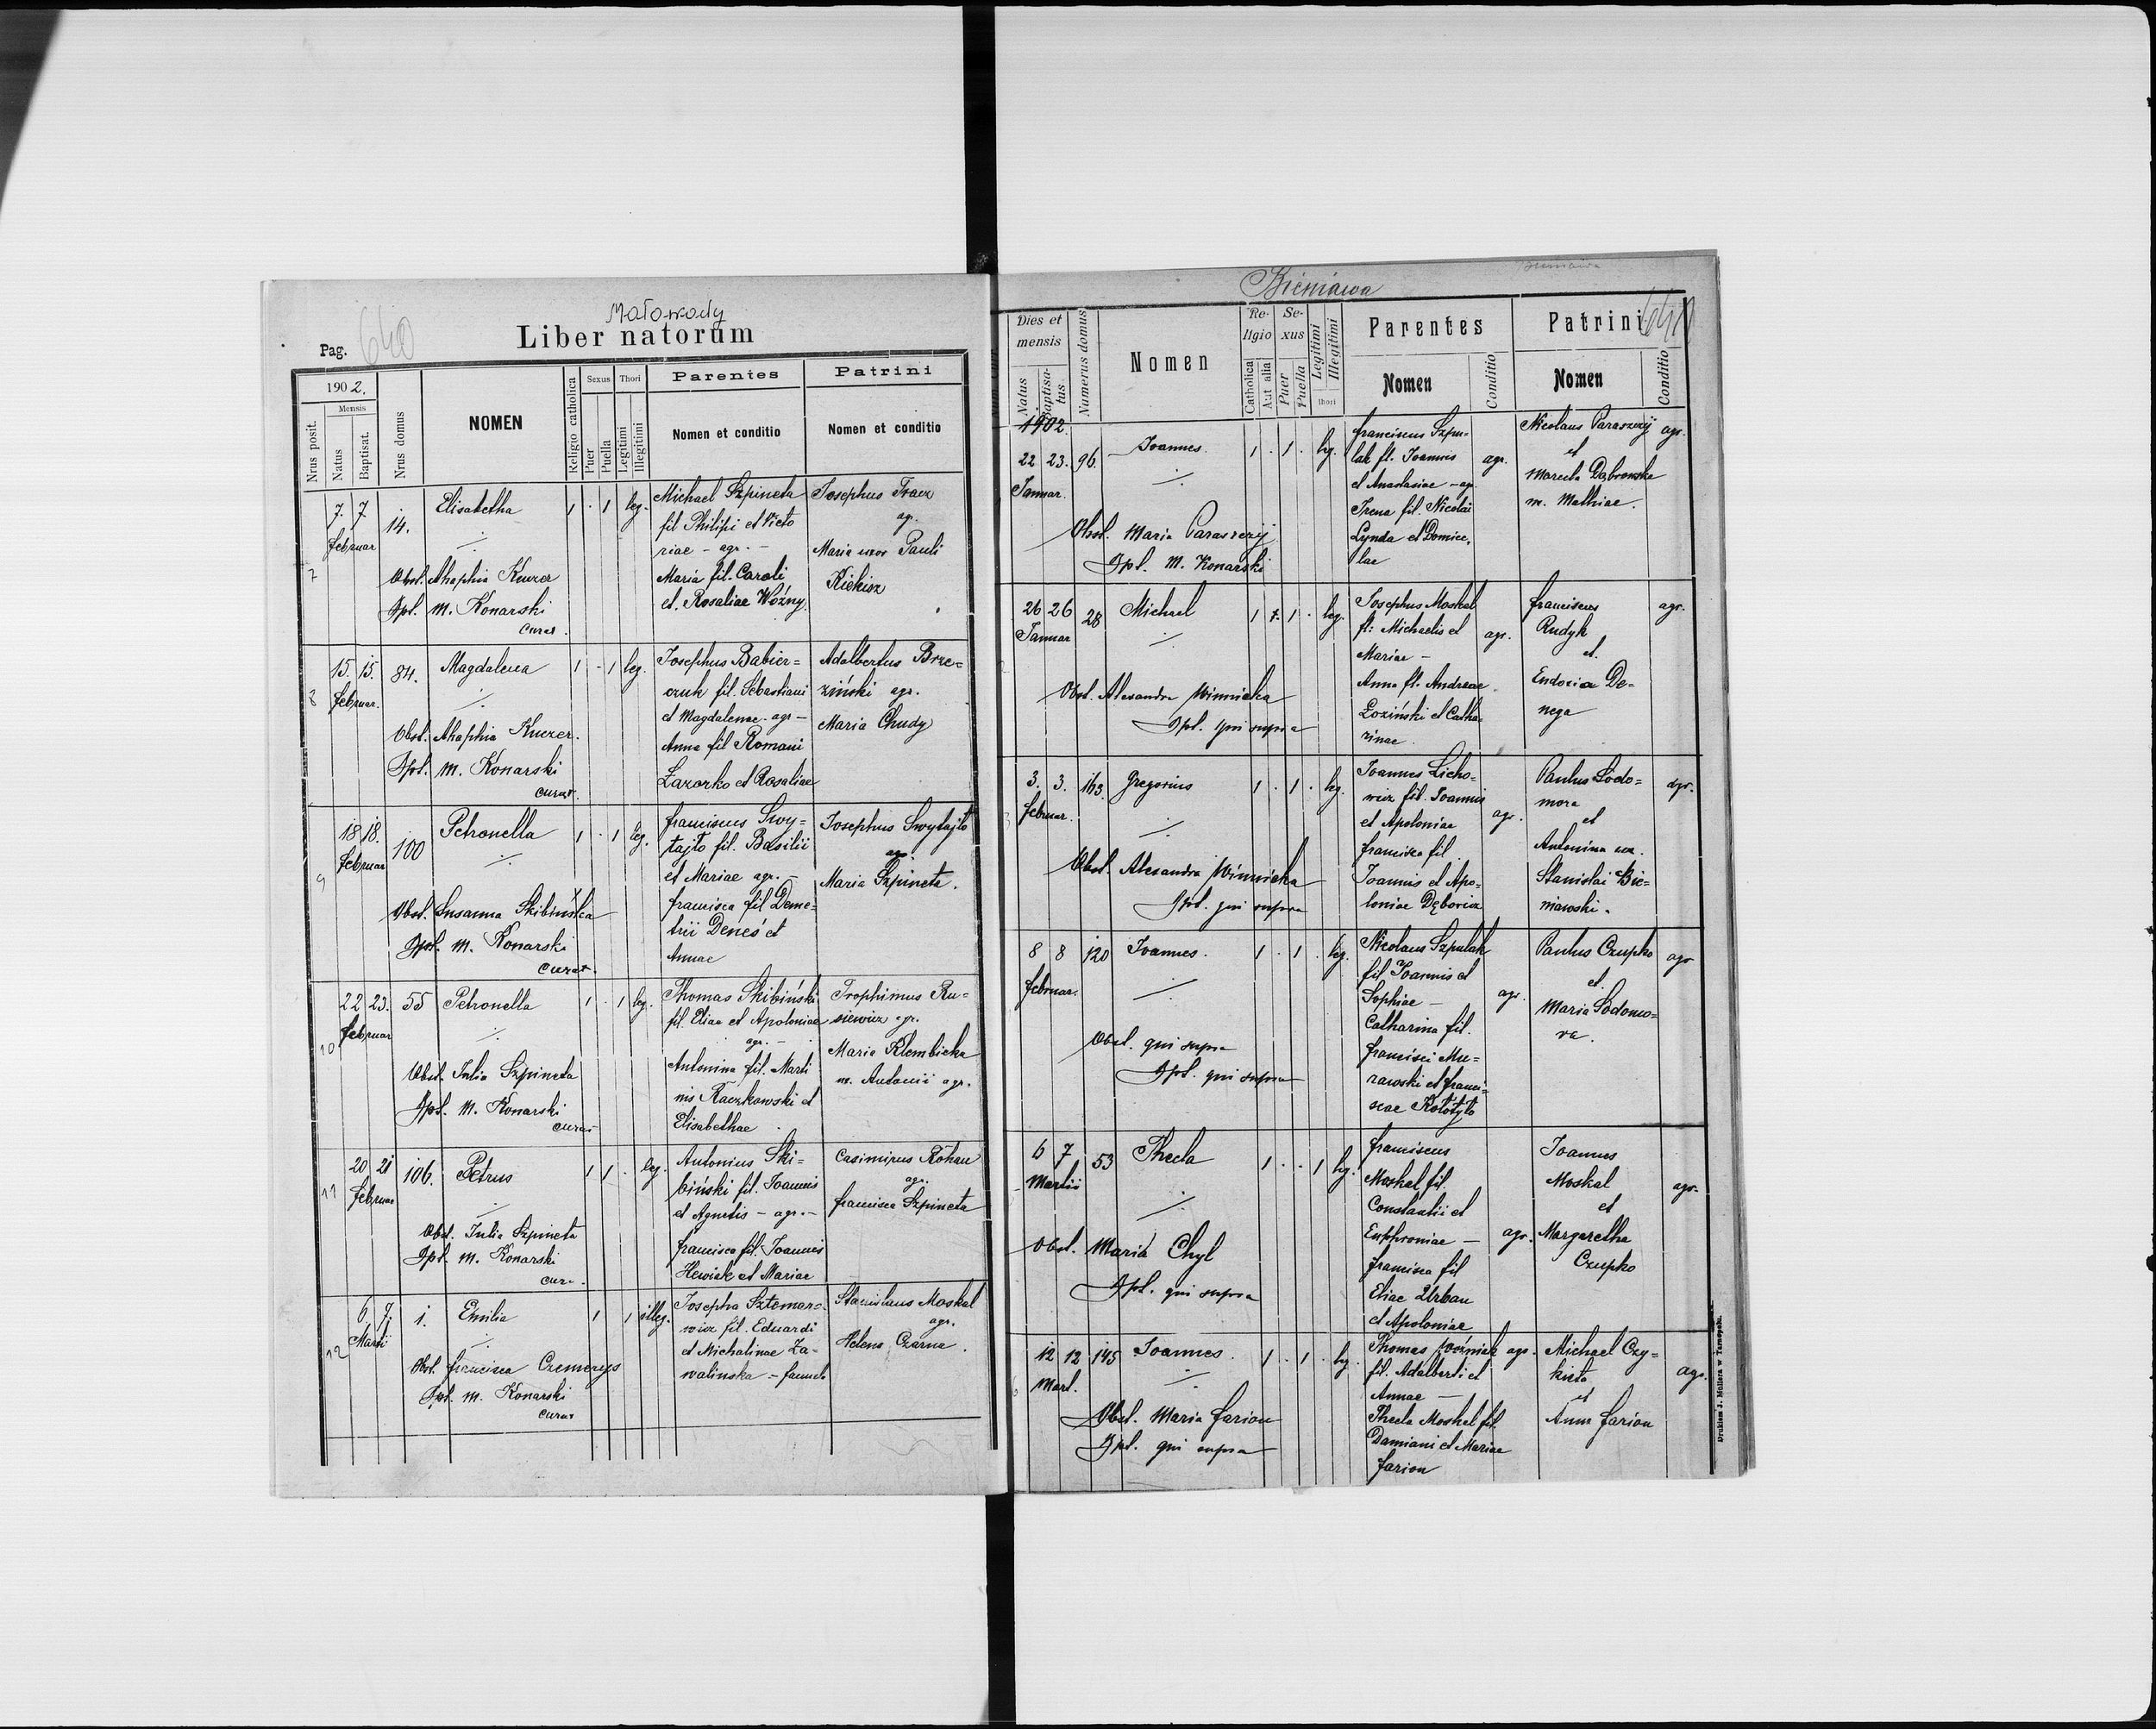 Małowody
Liber natorum
Pag. 640
1902.
Nrus posit.
Mensis
Natus
Baptisat.
Nrus domus
NOMEN
Religio catholica
Sexus
Puer
Puella
Thori
Legitimi
Illegitimi
Parentes
Nomen et conditio
Patrini
Nomen et conditio
7
7. 7
februar
14.
Elisabetha
1 · 1 leg.
Obst. Ahaphia Knuzer
Ipt. M. Konarski
curat.
Michael Szpineta
fil Philipi et Victo
riae - agr. -
Maria fil. Caroli
et. Rosaliae Woźny
Josephus Tracz
agr.
Maria uxor Pauli
Kiekisz
8
15. 15.
februar.
84.
Magdalena
1 - 1 leg.
Obst. Ahaphia Knuzer.
Ipt. M. Konarski
curat.
Josephus Babier=
czuk fil. Sebastiani
et Magdalenae - agr -
Anna fil Romani
Łazorko et Rosaliae
Adalbertus Brze=
ziński agr.
Maria Chudy
9
18 18.
februar
100
Petronella
1 · 1 leg.
Obst. Susanna Skibińska
Ipt. M. Konarski
curat.
franciscus Swy=
tajło fil. Basilii
et Mariae agr. -
francisca fil Deme=
trii Deneś et
Annae
Josephus Swytajło
agr.
Maria Szpineta.
10
22 23.
februar
55
Petronella
1 · 1 leg.
Obst. Julia Szpineta
Ipt. M. Konarski
curat
Thomas Skibiński
fil. Eliae et Apoloniae
agr. -
Antonina fil. Marti
nis Raczkowski et
Elisabethae
Trophimus Ru=
siewicz agr.
Maria Klembicka
m. Antonii agr.
11
20 21
februar
106.
Petrus
1 1 · leg.
Obst. Julia Szpineta
Ipt. M. Konarski
cura.
Antonius Ski=
biński fil. Joannis
et Agnetis - agr. -
francisca fil. Joannis
Hewiak et Mariae
Casimirus Rohan
agr.
francisca Szpineta
12
6 7.
Martii
1.
Emilia
1 1 illeg.
Obst. francisca Czemerys
Ipt. M. Konarski
curat
Josepha Sztemar=
wicz fil. Eduardi
et Michalinae Za-
walinska - famula
Stanislaus Moskal
agr.
Helena Czarna.
Bieniawa
641
Dies et
mensis
Natus
Baptisa-
tus
Numerus domus
Nomen
Re-
ligio
Catholica
Aut alia
Se-
xus
Puer
Puella
Legitimi
Illegitimi
Thori
Parentes
Nomen
Conditio
Patrini
Nomen
Conditio
1902.
22 23.
Januar.
96.
Joannes.
1 · 1 · leg.
Obst. Maria Paraszczij
Ipt. M. Konarski
franciscus Szpu=
lak fl. Joannis
et Anastasiae - agr
Irena fil. Nicolai
Lynda et Domicel
lae
agr.
Nicolaus Paraszczij
et
Marcela Dąbrowska
m. Mathiae.
agr.
26 26
Januar
28
Michael
leg.
Obst. Alexandra Winnicka
Ipt. qui supra
Josephus Moskal
fl. Michaelis et
Mariae -
Anna fl. Andreae
Łoziński et Catha-
rinae.
agr.
franciscus
Rudyk
et.
Endocia De=
nega
agr.
3. 3.
februar.
163.
Gregorius
1 · 1 · leg.
Obst. Alexandra Winnicka
Ipt. qui supra
Joannes Licho=
wicz fil. Joannis
et Apoloniae
francisca fil.
Joannis et Apo=
loniae Dęborica
agr.
Paulus Sodo=
mora
et
Antonina ux.
Stanislai Bie=
niawski.
agr.
8 8
februar.
120
Joannes.
1 · 1 · leg.
Obst. qui supra
Ipt. qui supra
Nicolaus Szpulak
fil. Joannis et
Sophiae -
Catharina fil.
francisci Mu=
rawski et franci=
scae Kołotyło
agr.
Paulus Czupko
et.
Maria Sodomo=
ra.
agr
6 7
Martii
53
Thecla
1 · · 1 leg.
Obst. Maria Chyl
Ipt. qui supra
franciscus
Moskal fil.
Constantii et
Euphroniae -
francisca fil
Eliae Urban
et Apoloniae
agr.
Joannes
Moskal
et
Margaretha
Czupko
agr.
12 12
Mart.
145
Joannes.
1 · 1 · leg.
Obst. Maria farion
Ipt. qui supra
Thomas Woźniak agr.
fil. Adalberti et
Annae -
Thecla Moskal fil.
Damiani et Mariae
farion
Michael Czy=
kieta
et
Anna farion
agr.
Drukiem J. Müllera w Tarnopolu.